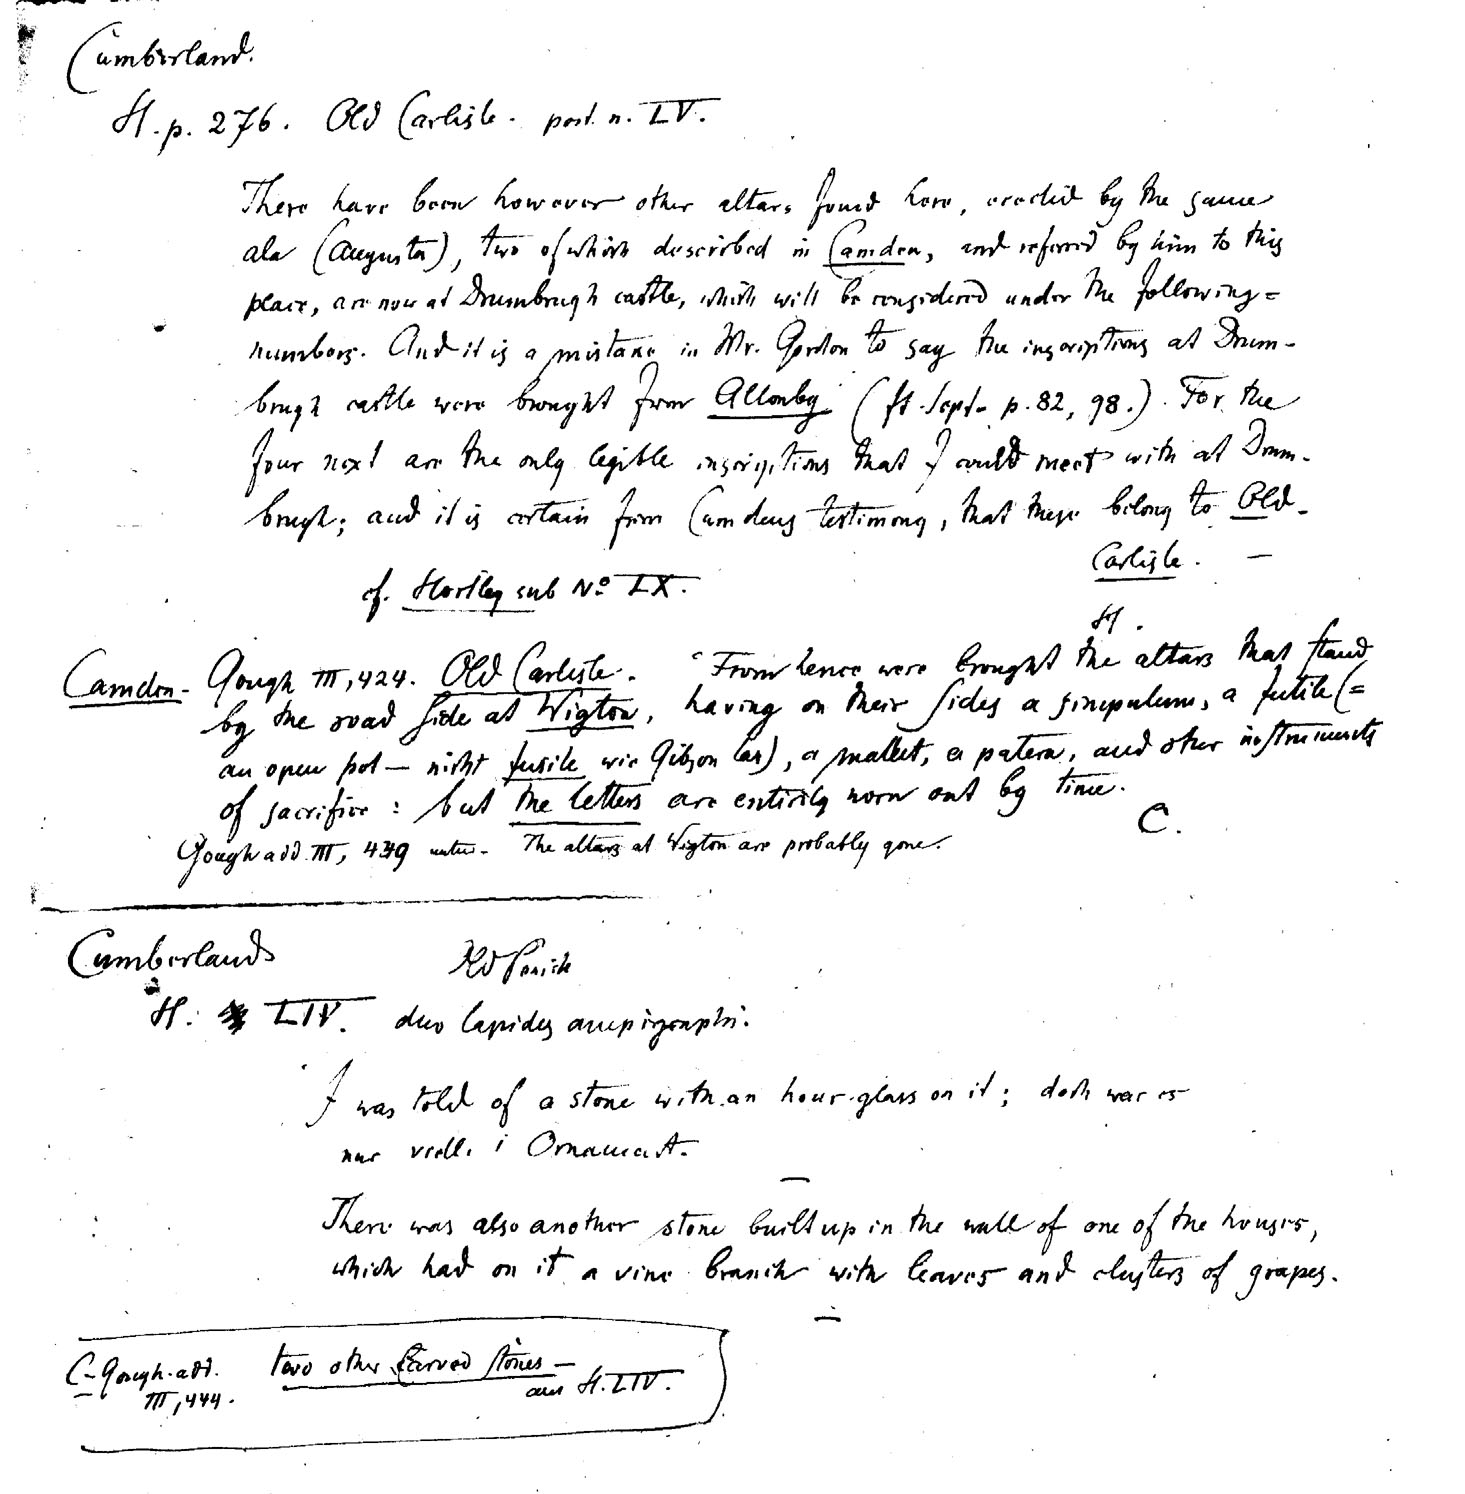 Cumberland.
H. p. 276. Old Carlisle. post. n. LV.
There have been however other altars found here, erected by the same
ala (Augusta), two of which described in Camden, and referred by him to this
place, are now at Drumbrugh castle, which will be considered under the following=
numbers. And it is a mistake in Mr. Gordon to say the inscriptions at Drum-
brugh castle were brought from Allonby (It. Sept. p. 82, 98.). For the
four next are the only legible inscriptions that I could meet with at Drum-
brugh; and it is certain from Camdens testimony, that these belong to Old-
Carlisle. —
cf. Horsley sub No LX.
H.
Camden- Gough III, 424. Old Carlisle. "From hence were brought the altars that stand
by the road side at Wigton, having on their sides a simpulum, a futile (=
an open pot — nicht fusile wie Gibson las), a mallet, a patera, and other instruments
of sacrifice: but the letters are entirely worn out by time.
C.
Gough add. III, 439 The altars at Wigton are probably gone.
Cumberland
Old Penrith
H. LIV. duo lapides anepigraphi.
I was told of a stone with an hour-glass on it; doch war es
nur viell. 1 Ornament.
There was also another stone built up in the wall of one of the houses,
which had on it a vine branch with leaves and clusters of grapes.
C-Gough. add. two other carved stones —
III, 444. aus H. LIV.